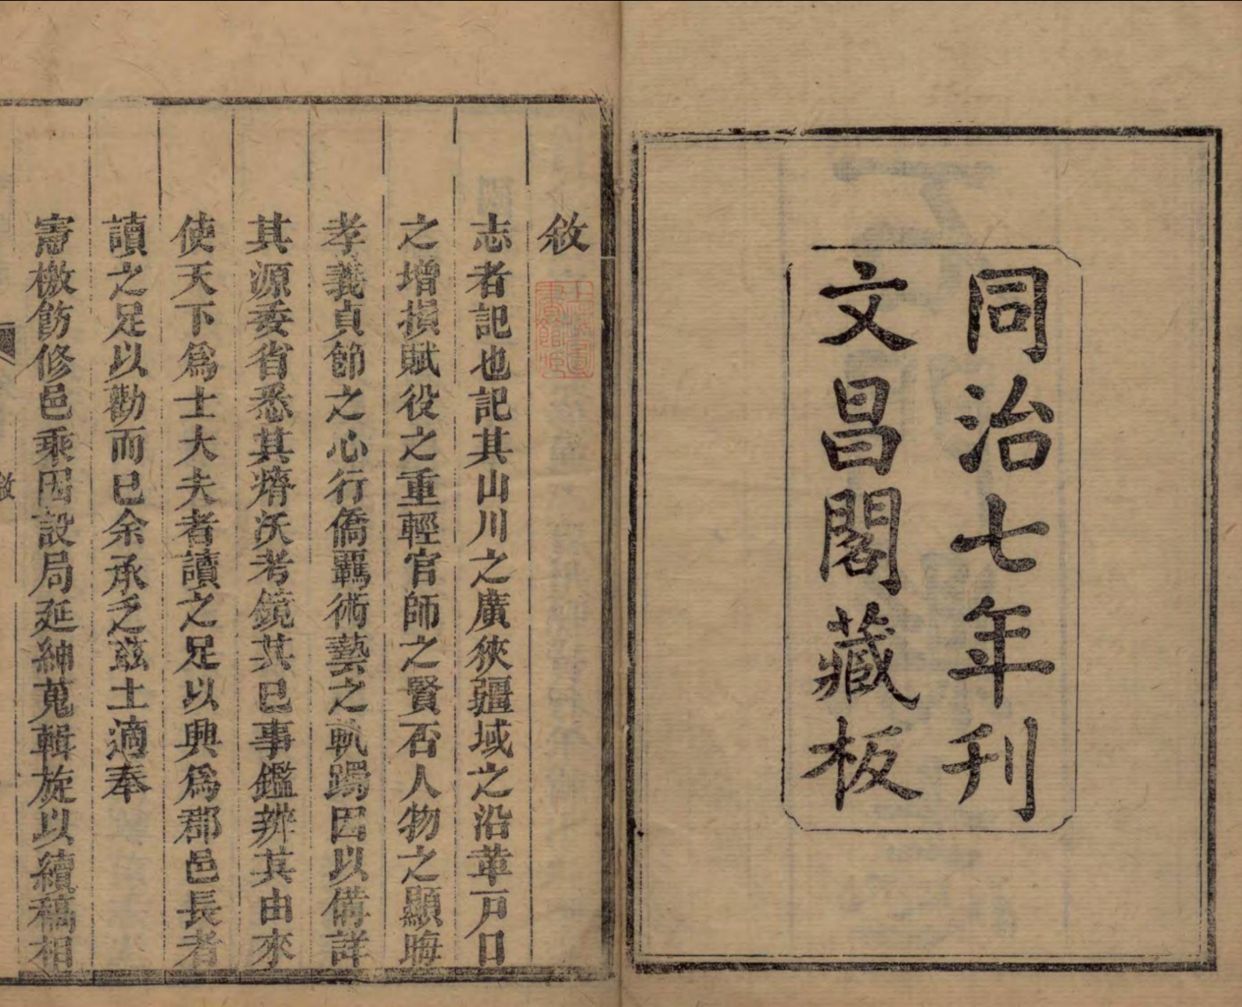 同治七年刊
文昌閣藏板
敘
志者記也記其山川之廣狹疆域之沿革戸口
之增損賦役之重輕官師之賢否人物之顯晦
孝義貞節之心行僑羈術藝之軌躅因以備詳
其源委省悉其瘠沃考鏡其已事鑑辨其由來
使天下爲士大夫者讀之足以興爲郡邑長者
讀之足以勸而已余承乏茲土適奉
憲檄飭修邑乘因設局延紳蒐輯旋以續稿相
敘